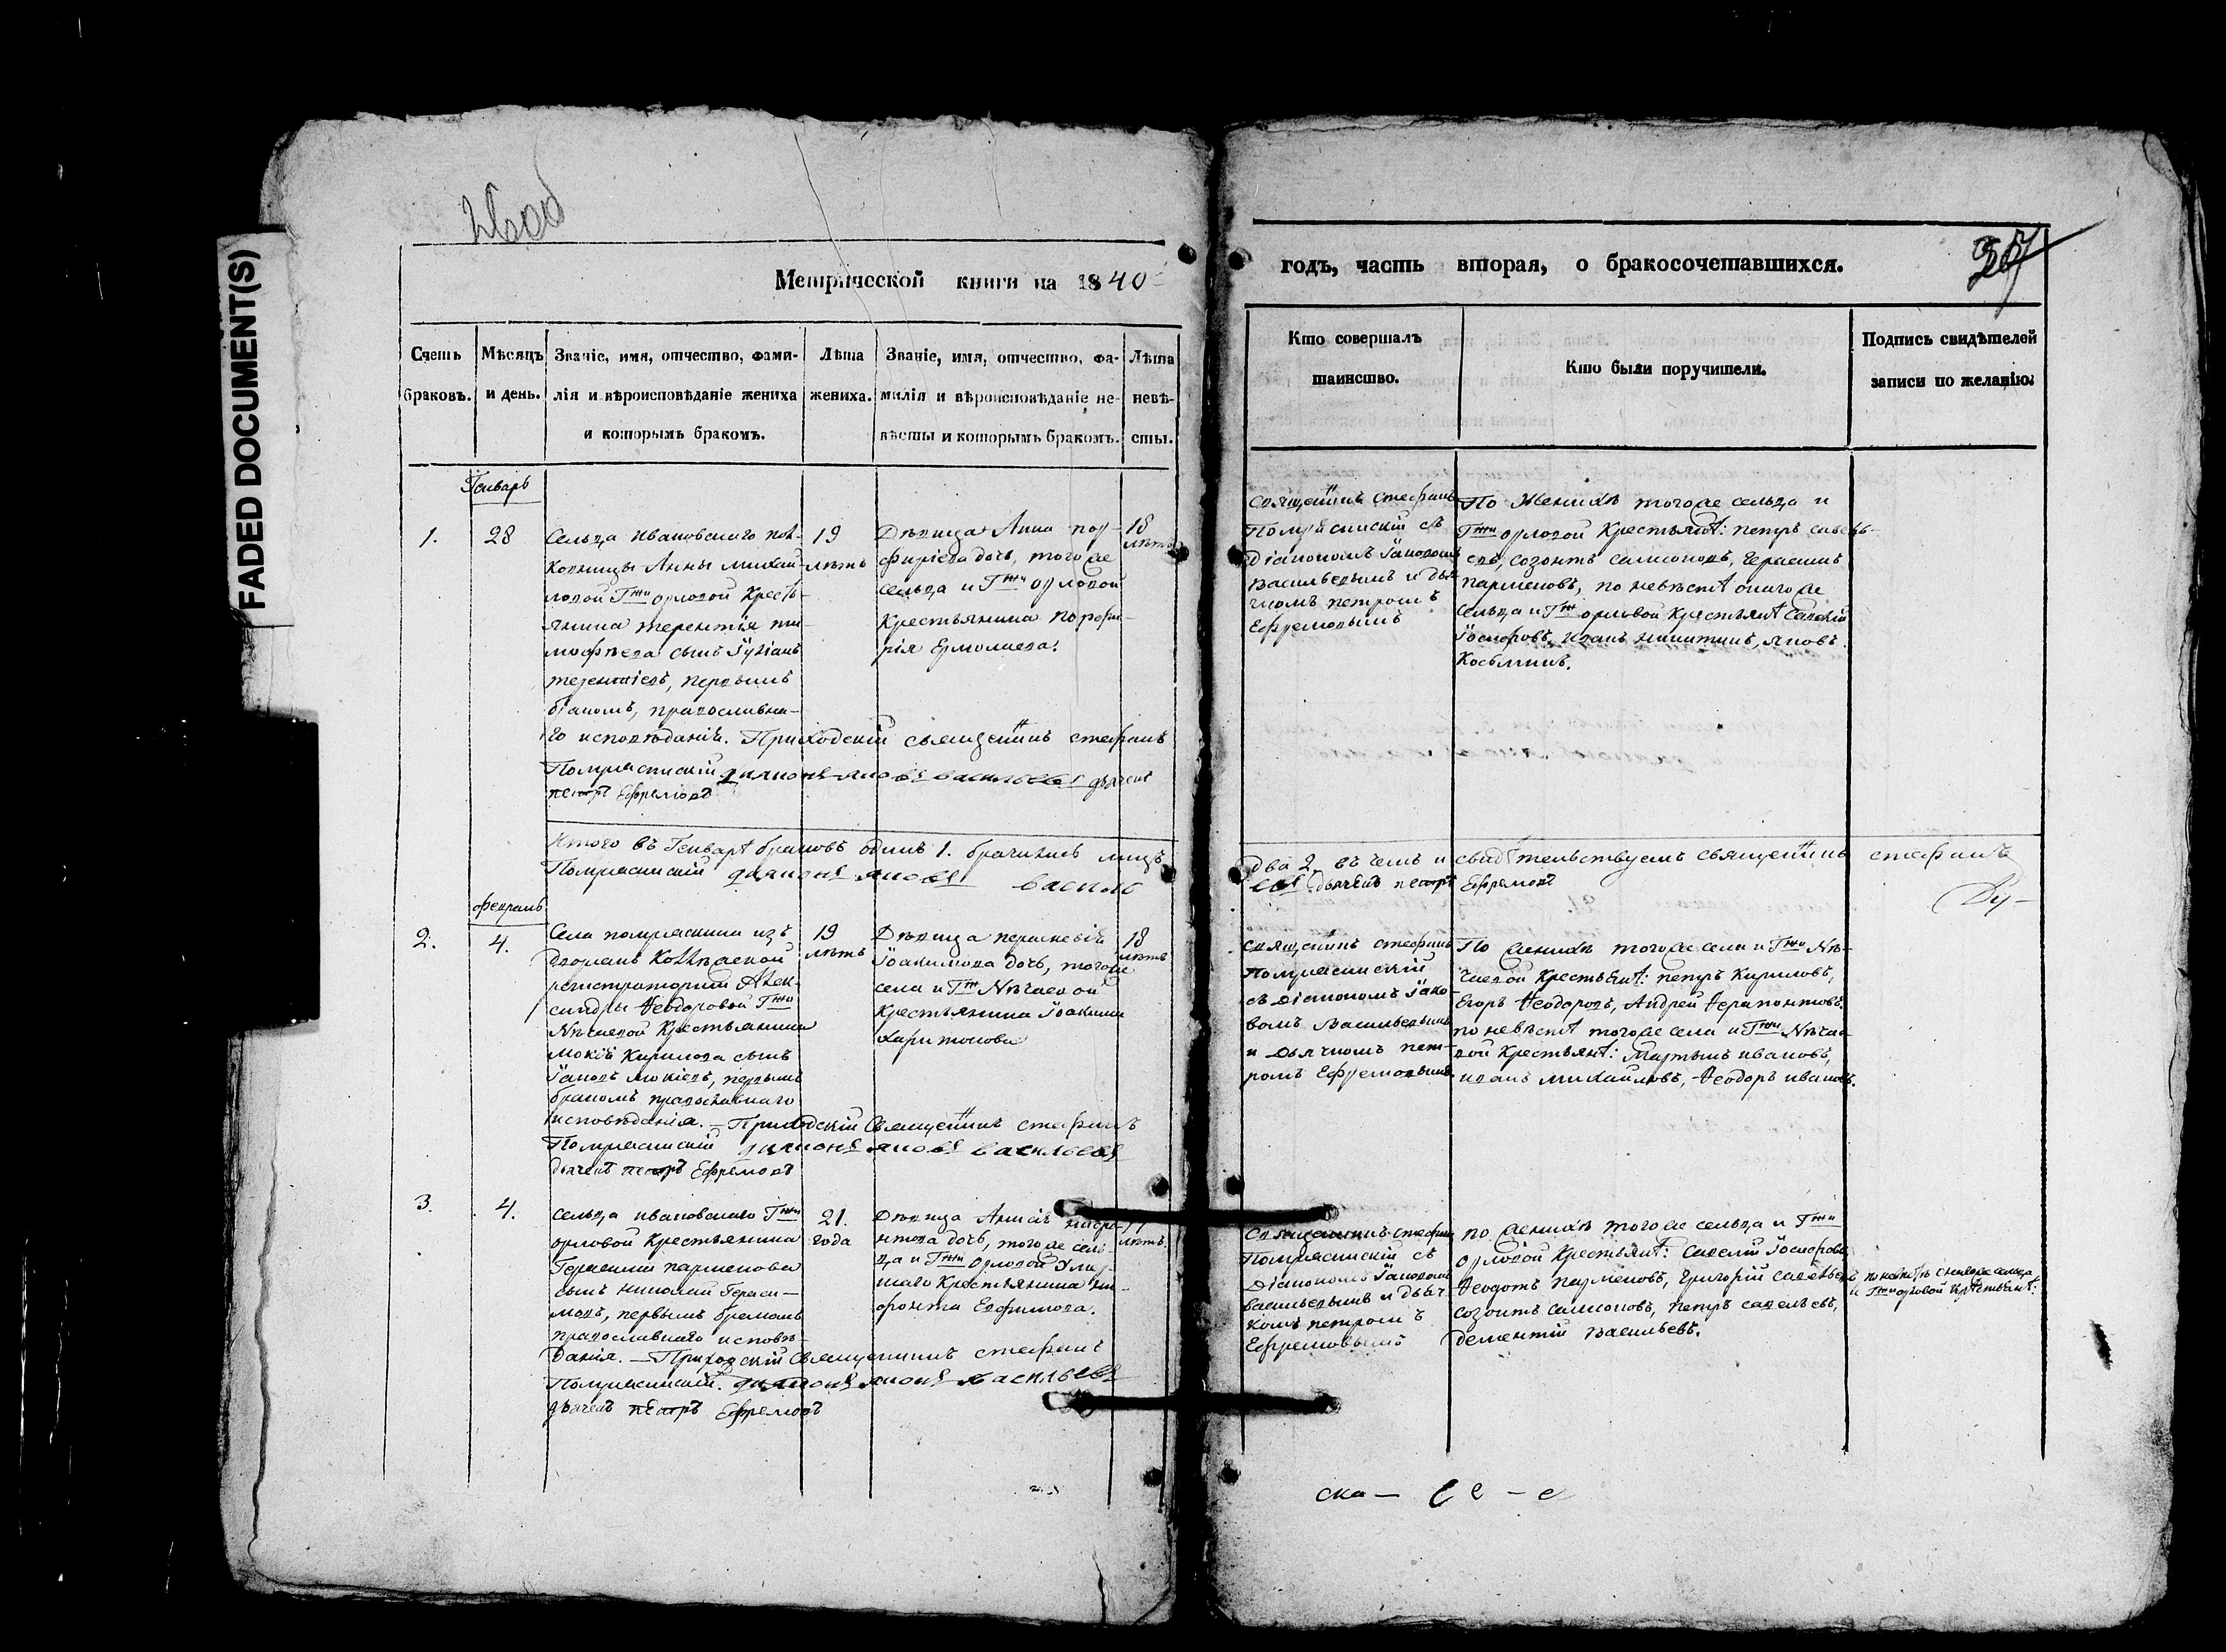 FADED DOCUMENT(S)
Метрической книги на 1840
годъ, часть вторая, о бракосочетавшихся.
Счетъ браковъ.
Мѣсяцъ и день.
Званіе, имя, отчество, фами-
лія и вѣроисповѣданіе жениха
и которымъ бракомъ.
Лѣта
жениха.
Званіе, имя, отчество, фа-
милія и вѣроисповѣданіе не-
вѣсты и которымъ бракомъ.
Лѣта
невѣ-
сты.
Кто совершалъ
таинство.
Кто были поручители.
Подпись свидѣтелей
записи по желанію.
Генварь
1.
28
Сельца Ивановскаго пол-
ковницы Анны Михай-
ловой Гжи Орловой Кресть-
янина Терентія Ти-
мофѣева сынъ Іуліанъ
Терентіевъ, первымъ
бракомъ, православна-
го исповѣданія. Приходскій священникъ Стефанъ
Помряскинскій діяконъ Яковъ Васильевъ дьячекъ
петръ Ефремовъ
19
лѣтъ
Дѣвица Анна пор-
фиріева дочь, того же
сельца и Гжи Орловой
Крестьянина Порфи-
рія Ермолаева.
18
лѣтъ
Священникъ Стефанъ
Помряскинскій съ
Діакономъ Іаковомъ
Васильевымъ и дья-
чкомъ петромъ
Ефремовымъ
По Женихѣ того же сельца и
Гжи Орловой Крестьянѣ: петръ савель-
евъ, Созонтъ Самсоновъ, Герасимъ
парменовъ, по невѣстѣ онаго же
Сельца и Гжи Орловой Крестьянѣ Савелій
Іосифовъ, Иванъ Никитинъ, Яковъ
Косьминъ.
Итого въ Генварѣ браковъ одинъ 1. брачились лицъ
Помряскинскій діяконъ Яковъ Василь
два 2, въ чемъ и свидѣтельствуемъ священникъ Стефанъ
евъ дьячекъ петръ Ефремовъ
февраль
2.
4.
Села помряскина изъ
Дворянъ Коллѣжской
регистраторши Алек-
сандры Ѳеодоровой Гжи
Нѣчаевой Крестьянина
Мокія Кирилова сынъ
Іаковъ Мокіевъ, первымъ
бракомъ православнаго
исповѣданія. – Приходскій Священникъ Стефанъ
Помряскинскій діяконъ Яковъ Васильевъ
дьячекъ петръ Ефремовъ
19
лѣтъ
Дѣвица параскевія
Іоакимова дочь, того же
села и Гжи Нѣчаевой
Крестьянина Іоакима
Харитонова
18
лѣтъ
Священникъ Стефанъ
Помряскинскій
съ Діакономъ Іако-
вомъ Васильевымъ
и Дьячкомъ пет-
ромъ Ефремовымъ
По женихѣ того же села и Гжи Нѣ-
чаевой Крестьянѣ: петръ Кириловъ,
Егоръ Ѳеодоровъ, Андрей Ѳерапонтовъ.
по невѣстѣ того же села и Гжи Нѣчае-
вой Крестьянѣ: Мартынъ ивановъ,
иванъ михайловъ, Ѳеодоръ ивановъ.
3.
4.
Сельца ивановскаго Гжи
Орловой Крестьянина
Герасима парменова
сынъ Николай Гераси-
мовъ, первымъ бракомъ
православнаго исповѣ-
данія. – Приходскій Священникъ Стефанъ
Помряскинскій. діяконъ Яковъ Васильевъ
дьячекъ петръ Ефремовъ
21.
года
Дѣвица Анисія Никфо-
нтова дочь, того же сель-
ца и Гжи Орловой умер-
шаго Крестьянина Ни-
фонта Евфимова.
17
лѣтъ.
Священникъ Стефанъ
Помряскинскій съ
Діакономъ Іаковомъ
Васильевымъ и дьяч-
комъ петромъ
Ефремовымъ
по женихѣ того же сельца и Гжи
Орловой Крестьянѣ: Савелій Іосифовъ
Ѳеодотъ Парменовъ, Григорій Савельевъ по невѣстѣ онаго же сельца
и Гжи орловой Крестьянѣ:
Созонтъ Самсоновъ, петръ савельевъ,
Дементій Васильевъ.
ска –